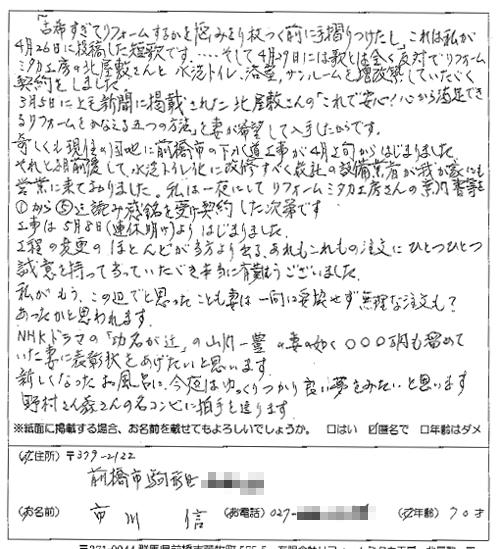 「古希すぎてリフォームするかを悩みをり杖つく前に手摺りつけたし」これは私が
4月26日に投稿した短歌です.....そして4月29日には歌とは全く反対でリフォーム
ミタカ工房の北屋敷さんと水洗トイレ、浴室、サンルームを増改築していただく
契約をしました。
3月5日に上毛新聞に掲載された北屋敷さんの「これで安心!心から満足でき
るリフォームをかなえる五つの方法」を妻が希望して入手したからです。
奇しくも現住の団地に前橋市の下水道工事が4月上旬からはじまりました
それと相前後して水洗トイレ化に改修すべく数社の設備業者が我が家にも
営業に来ておりました。私は一夜にしてリフォームミタカ工房さんの案内書等を
①から⑤迄読み感銘を受け契約した次第です
工事は5月8日(連休明け)よりはじまりました。
工程の変更のほとんどが当方より出る、あれもこれもの注文にひとつひとつ
誠意を持って当っていただき本当に有難うございました。
私がもう、この辺でと思ったことも妻は一向に妥協せず無理な注文も?
あったかと思われます。
NHKドラマの「功名が辻」の山内一豊の妻の如く〇〇〇万円も溜めて
いた妻に表彰状をあげたいと思います。
新しくなったお風呂に、今夜はゆっくりつかり良い夢をみたいと思います
野村さん森さんの名コンビに拍手を送ります
※紙面に掲載する場合、お名前を載せてもよろしいでしょうか。 □はい ☑匿名で □年齢はダメ
ご住所) 〒379-2122
前橋市駒形町
お名前) 市川 信 お電話) 027- ご年齢) 70才